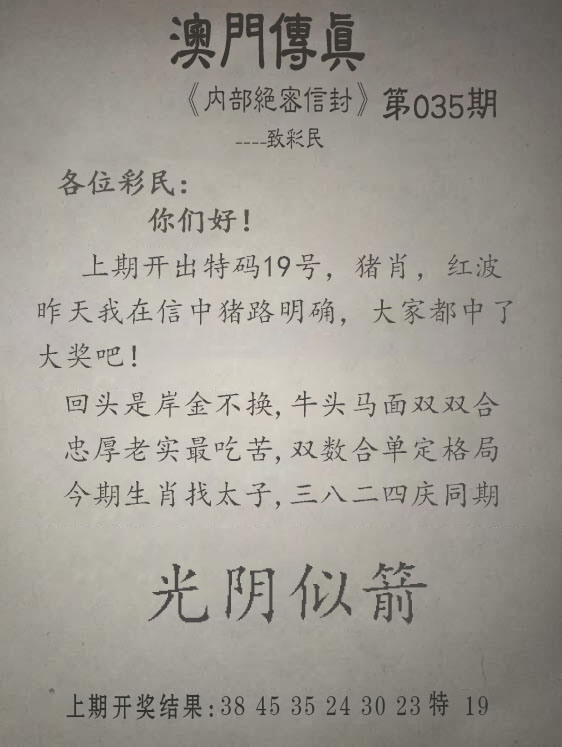 澳門傳眞
《内部絕密信封》第035期
----致彩民
各位彩民：
你们好！
上期开出特码19号，猪肖，红波
昨天我在信中猪路明确，大家都中了
大奖吧！
回头是岸金不换,牛头马面双双合
忠厚老实最吃苦,双数合单定格局
今期生肖找太子,三八二四庆同期
光阴似箭
上期开奖结果:38 45 35 24 30 23 特 19